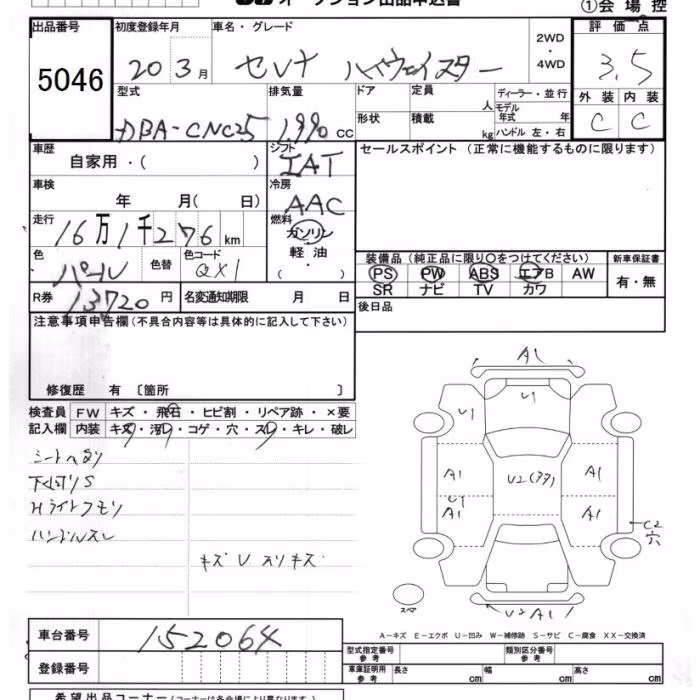 オークション出品申込書
①会場控
出品番号 初度登録年月 車名・グレード 2WD・4WD 評価点
5046 20 3月 セレナ ハイウェイスター 3.5
型式 排気量 ドア 定員 人 ディーラー・並行 外装 内装
DBA-CNC25 1,990 CC 形状 積載 kg モデル年式 年 ハンドル 左・右 C C
車歴 自家用・( ) シフト IAT セールスポイント (正常に機能するものに限ります)
車検 年 月( 日) 冷房 AAC
走行 16万1千276km 燃料 ガソリン 軽油 ( ・ )
色 パール 色替 色コード QX1 装備品(純正品に限り○をつけてください) 新車保証書
PS PW ABS エアB AW 有・無
SR ナビ TV カワ
R券 13720円 名変通知期限 月 日 後日品
注意事項申告欄(不具合内容等は具体的に記入して下さい)
修復歴 有 〔箇所 〕
検査員 FW キズ・飛石・ヒビ割・リペア跡・×要
記入欄 内装 キズ・汚レ・コゲ・穴・スレ・キレ・破レ
シートヘタリ
下回りS
Hライトクモリ
ハンドルスレ
キズUスリキズ
A1
U1 U1
A1 U2(多) A1
U1
A1 A1
C2
穴
スペア U2A1
A-キズ E-エクボ U-凹み W-補修跡 S-サビ C-腐食 XX-交換済
車台番号 152064
型式指定番号 参考 類別区分番号 参考
登録番号 車庫証明用 参考 長さ cm 幅 cm 高さ cm
希望出品コーナー(コーナーは各会場により異なります。)